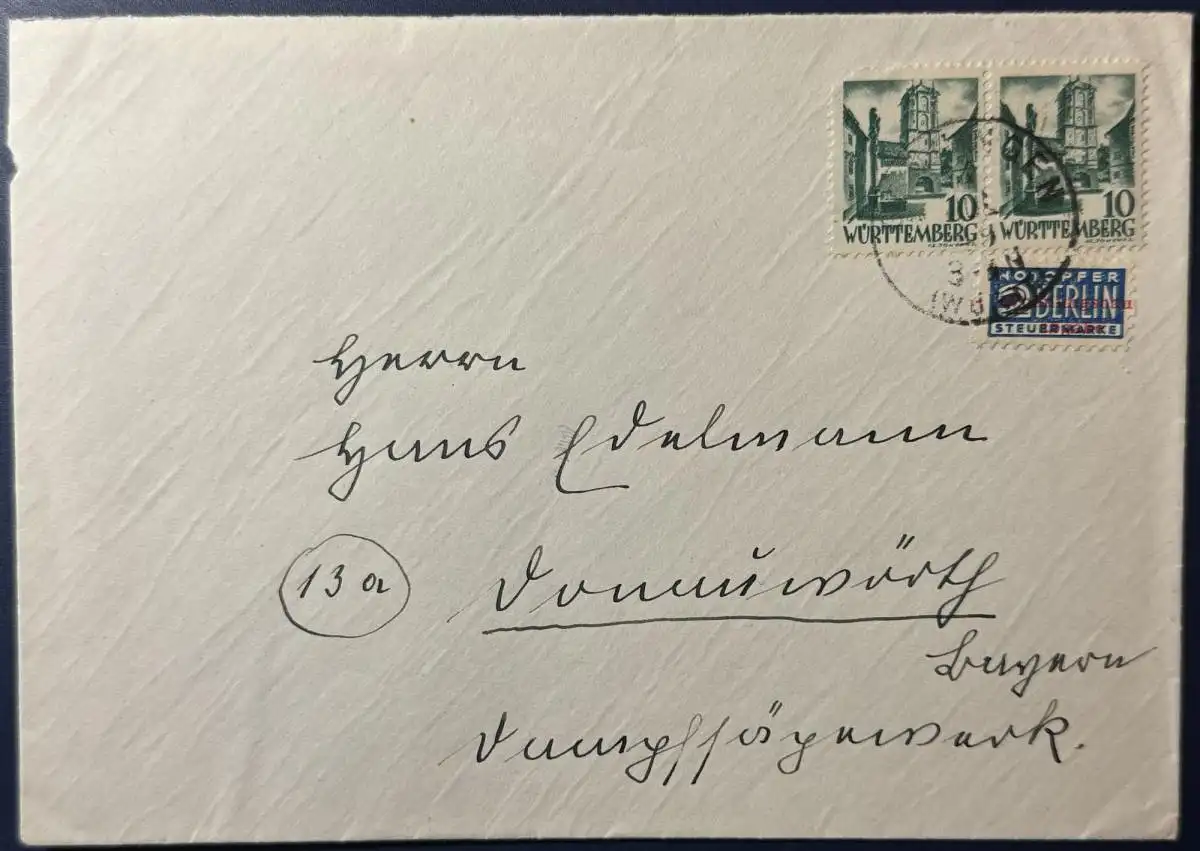 10
WÜRTTEMBERG
10
WÜRTTEMBERG
NOTOPFER
2 BERLIN
STEUERMARKE
Herrn
Hans Edelmann
13a
Donauwörth
Bayern
Dampfsägewerk.